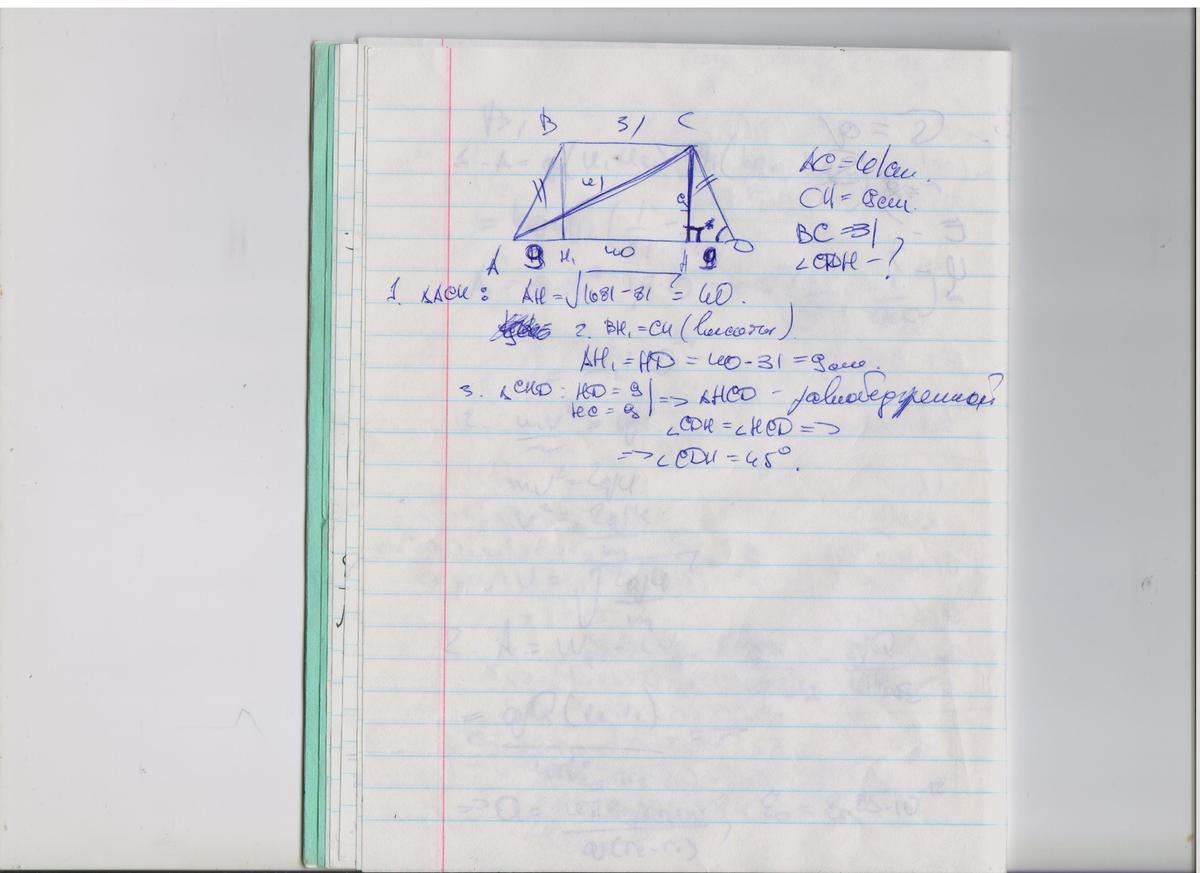 B 31 C
AC = 41 см.
41
CH = 9 см.
9
BC = 31
A 9 H₁ 40 H 9 D
∠CDH - ?
1. △ACH: AH = √1681 - 81 = 40.
2. BH₁ = CH (высоты).
AH₁ = HD = 40 - 31 = 9 см.
3. △CHD: HD = 9
HC = 9 | => △HCD - равнобедренный
∠CDH = ∠HCD =>
=> ∠CDH = 45°.